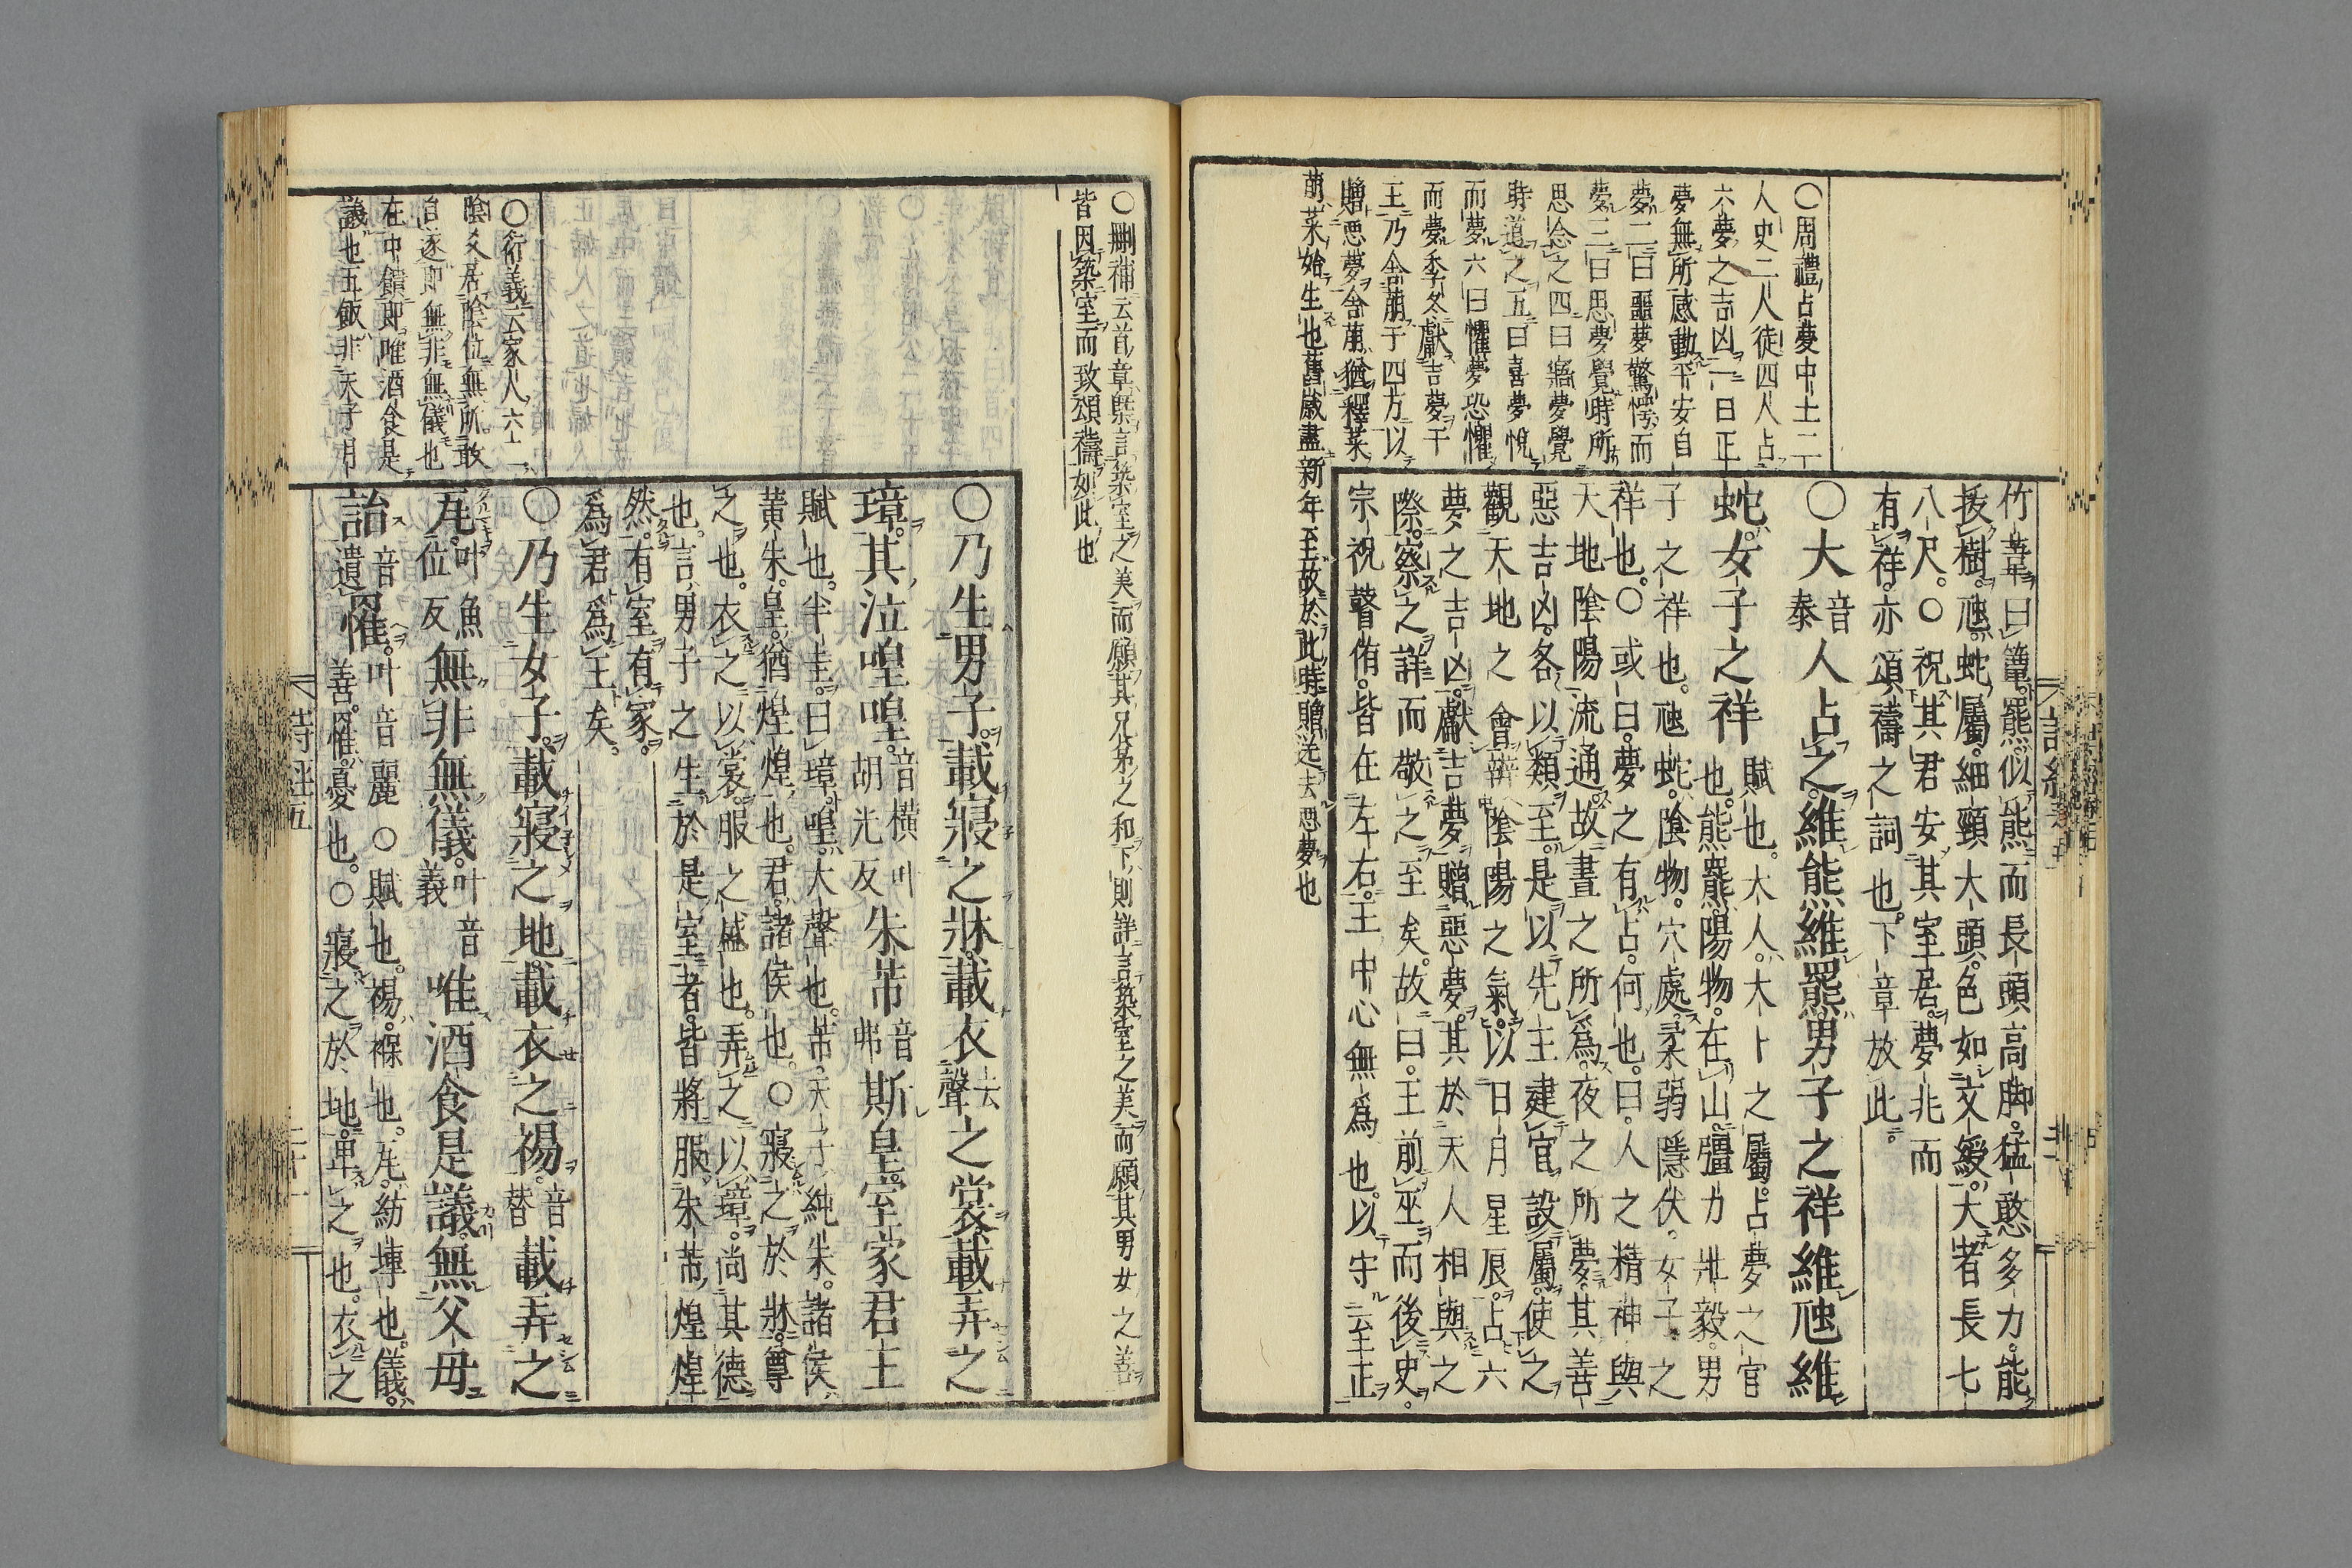 竹葦曰簟。羆似熊而長頭高脚。猛憨多力。能
拔樹。虺。蛇屬。細頸大頭。色如文綬。大者長七
八尺。○祝其君安其室居。夢兆而
有祥。亦頌禱之詞也。下章放此。
○大音泰人占之。維熊維羆男子之祥維虺維
蛇。女子之祥賦也。大人。大卜之屬。占夢之官也。熊羆。陽物。在山。彊力壯毅。男
子之祥也。虺蛇。陰物。穴處。柔弱隱伏。女子之
祥也。○或曰。夢之有占。何也。曰。人之精神與
天地陰陽流通。故晝之所爲。夜之所夢。其善
惡吉凶。各以類至。是以先王建官設屬。使之
觀天地之會辨陰陽之氣。以日月星辰。占六
夢之吉凶。獻吉夢。贈惡夢。其於天人相與之
際。察之詳而敬之至矣。故曰。王前巫而後史。
宗祝瞽侑。皆在左右。王中心無爲也。以守至正
○周禮占夢中士二
人史二人徒四人占
六夢之吉凶一曰正
夢無所感動平安自
夢二曰噩夢驚愕而
夢三曰思夢覺時所
思念之四曰寤夢覺
時道之五曰喜夢悅
而夢六曰懼夢恐懼
而夢季冬獻吉夢于
王乃舍萌于四方以
贈惡夢舍萌猶釋菜
萌菜始生也舊歲盡新年至故於此時贈送去惡夢也
○刪補云首章槩言築室之美而願其兄弟之和下則詳言築室之美而願其男女之善
皆因築室而致頌禱如此也
○乃生男子。載寢之牀。載衣去聲之裳。載弄之
璋。其泣喤喤。音橫叶胡光反朱芾音弗斯皇。室家君王
賦也。半圭。曰璋。喤。大聲也。芾。天子純朱。諸侯
黃朱。皇。猶煌煌也。君。諸侯也。○寢之於牀。尊
之也。衣之以裳。服之盛也。弄之以璋。尚其德
也。言男子之生於是室者。皆將服朱芾。煌煌
然。有室有家。
爲君爲王矣。
○乃生女子。載寢之地。載衣之裼。音替載弄之
瓦。叶魚位反無非無儀。叶音義唯酒食是議。無父母
詒音遺罹。叶音麗○賦也。裼。褓也。瓦。紡塼也。儀。善。罹。憂也。○寢之於地。卑之也。衣之
○衍義云家人六二
陰爻居陰位無所敢
自遂即無非無儀也
在中饋即唯酒食是
議也五飯非天子用
詩經五